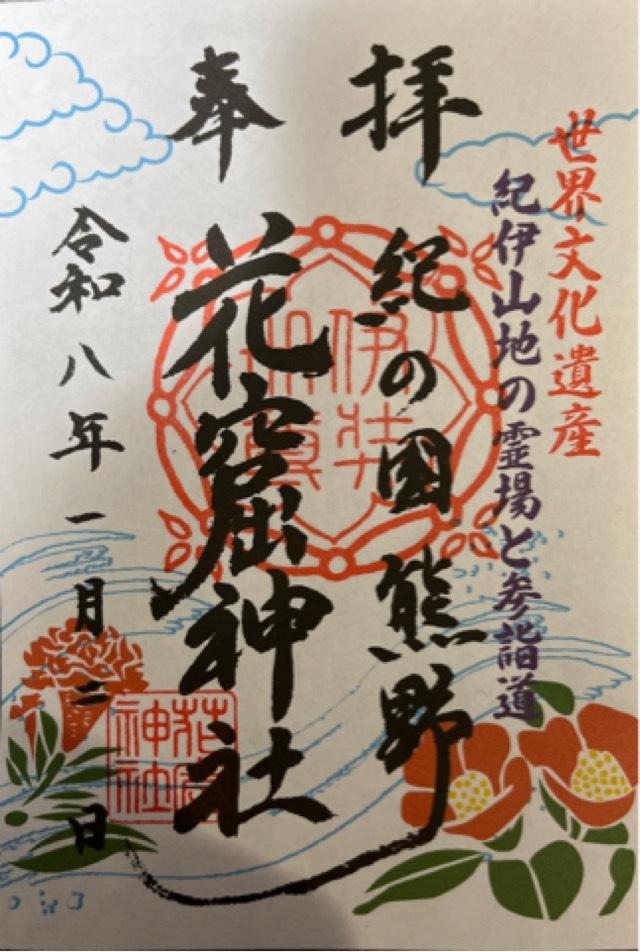 世界文化遺産
紀伊山地の霊場と参詣道
奉拝
紀の国熊野
花窟神社
令和八年一月二日
花窟
神社